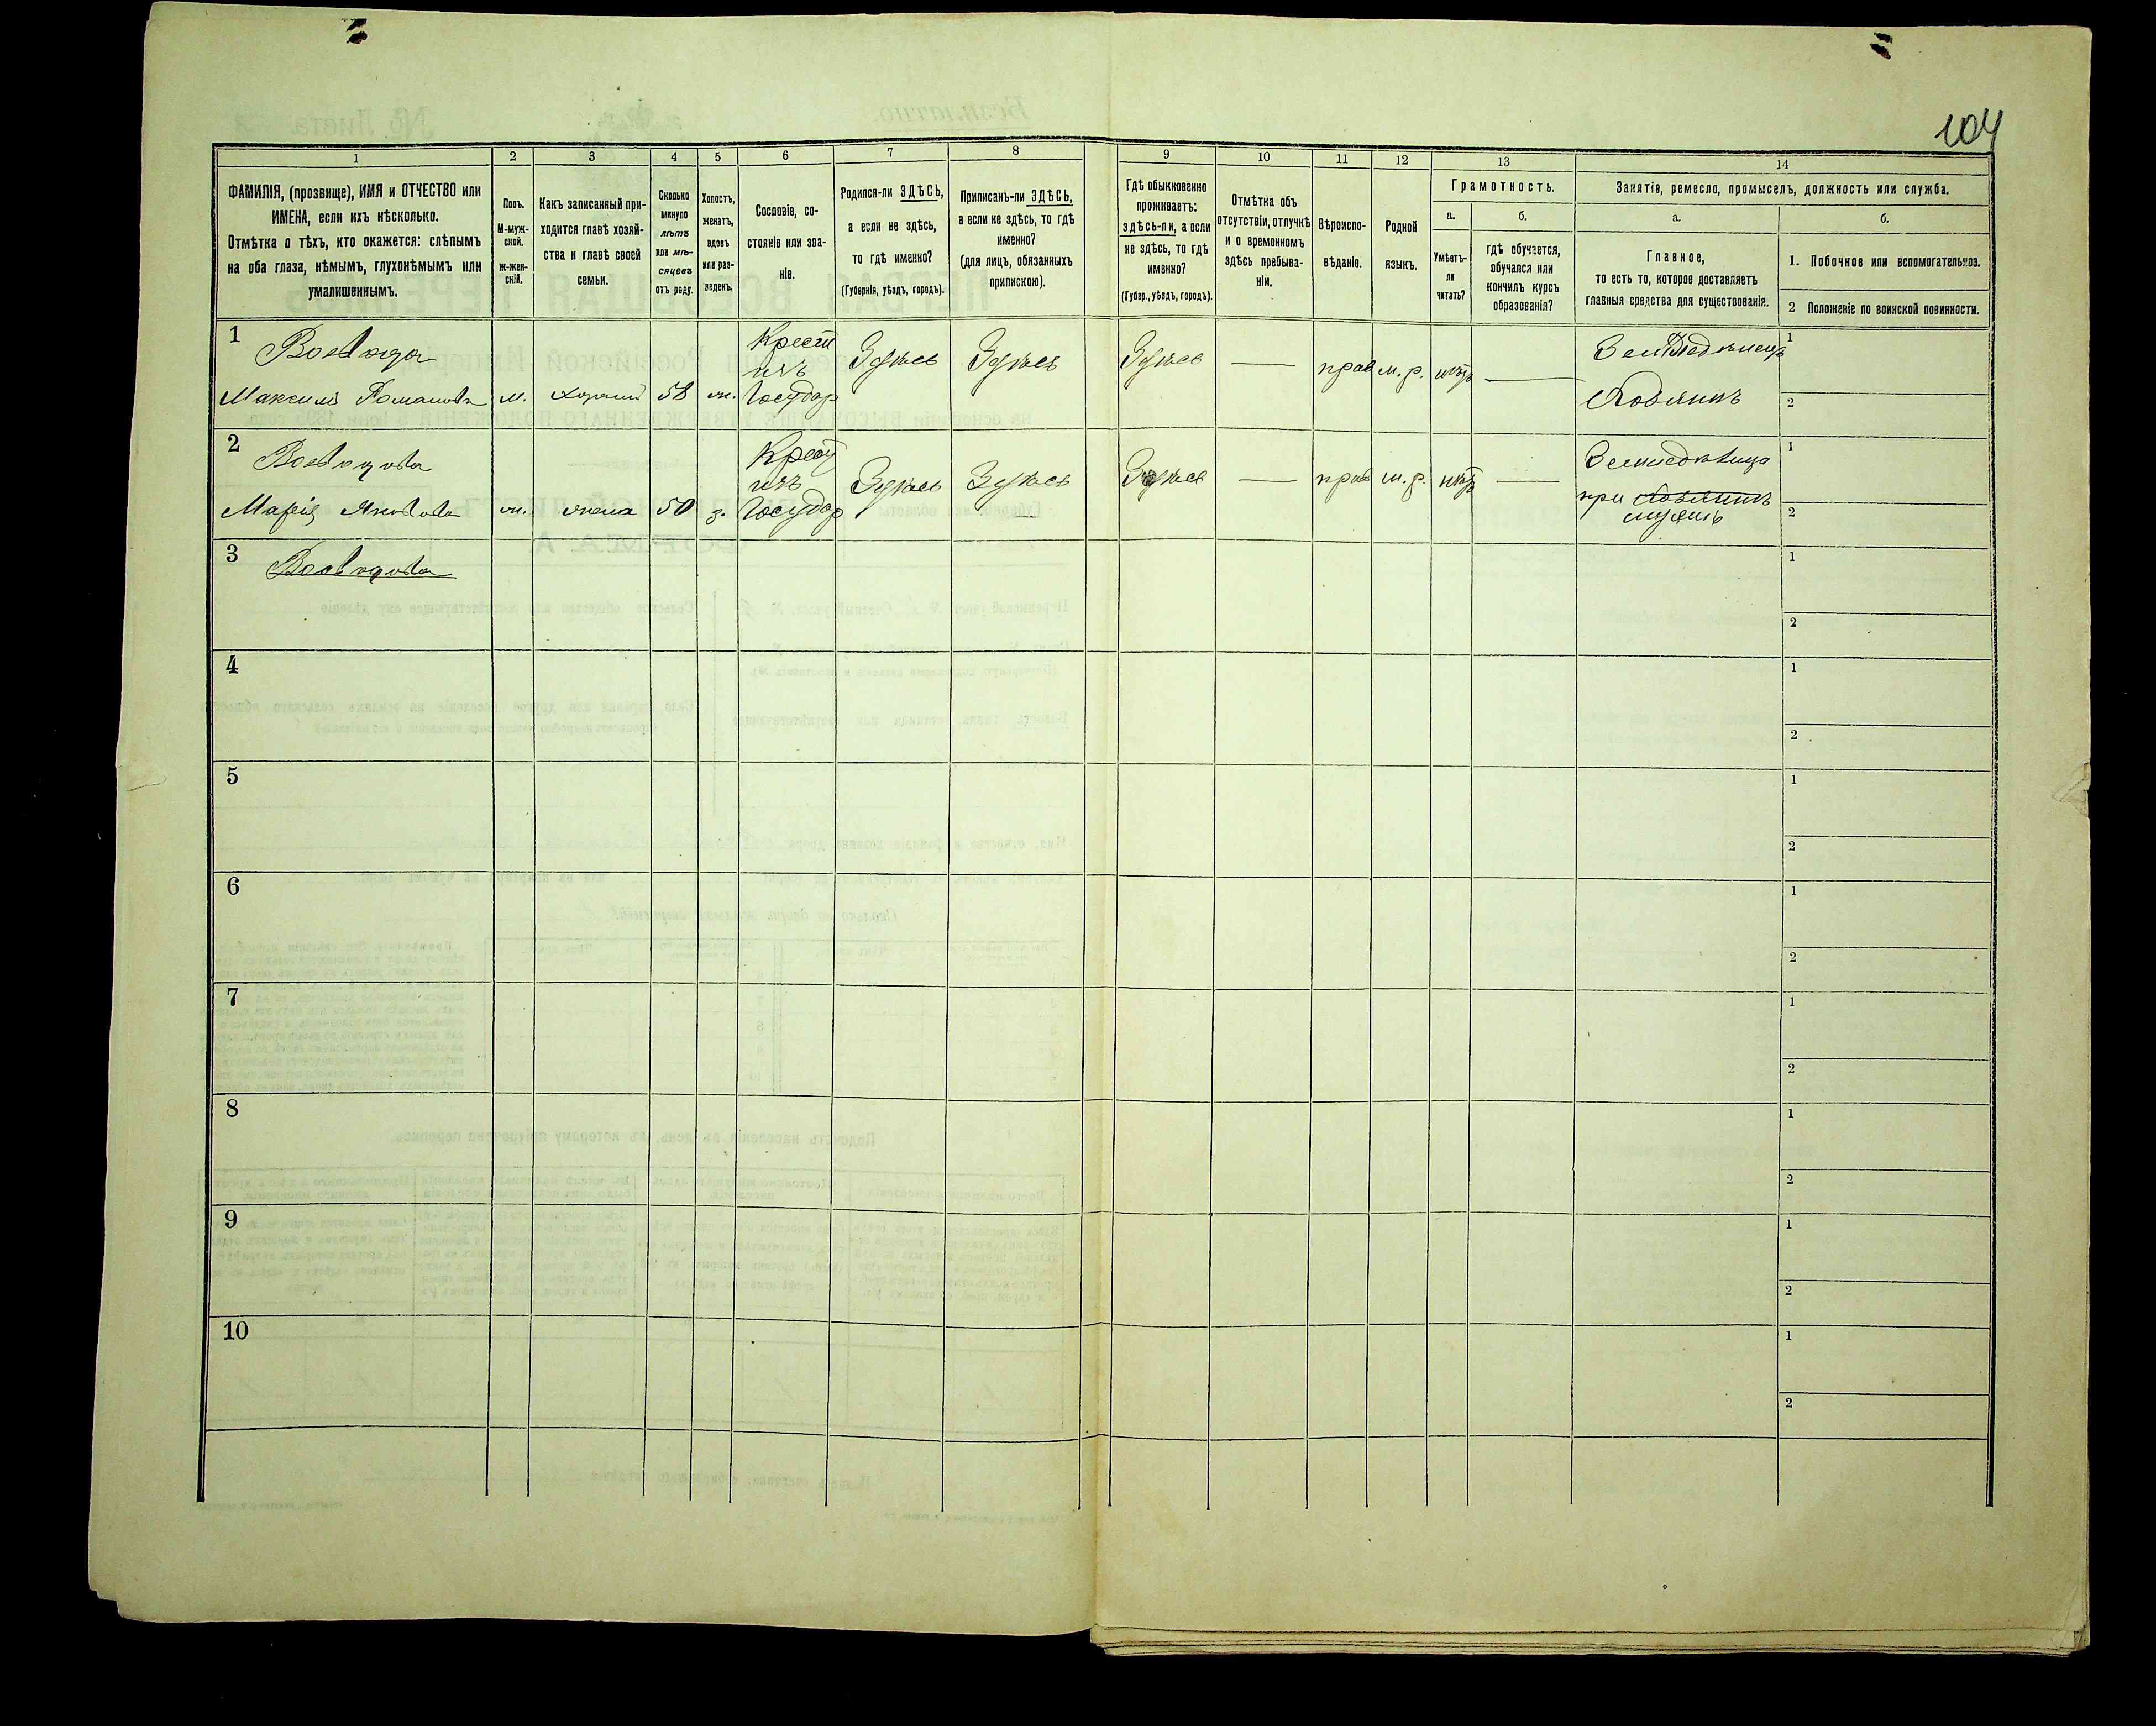 104
1
2
3
4
5
6
7
8
9
10
11
12
13
14
ФАМИЛІЯ, (прозвище), ИМЯ и ОТЧЕСТВО или
ИМЕНА, если ихъ нѣсколько.
Отмѣтка о тѣхъ, кто окажется: слѣпымъ
на оба глаза, нѣмымъ, глухонѣмымъ или
умалишеннымъ.
Полъ.
М-муж-
ской.
ж-жен-
скій.
Какъ записанный при-
ходится главѣ хозяй-
ства и главѣ своей
семьи.
Сколько
минуло
лѣтъ
или мѣ-
сяцевъ
отъ роду.
Холостъ,
женатъ,
вдовъ
или раз-
веденъ.
Сословіе, со-
стояніе или зва-
ніе.
Родился-ли ЗДѢСЬ,
а если не здѣсь,
то гдѣ именно?
(Губернія, уѣздъ, городъ).
Приписанъ-ли ЗДѢСЬ,
а если не здѣсь, то гдѣ
именно?
(для лицъ, обязанныхъ
припискою).
Гдѣ обыкновенно
проживаетъ:
здѣсь-ли, а если
не здѣсь, то гдѣ
именно?
(Губер., уѣздъ, городъ).
Отмѣтка объ
отсутствіи, отлучкѣ
и о временномъ
здѣсь пребыва-
ніи.
Вѣроиспо-
вѣданіе.
Родной
языкъ.
Грамотность.
а.
Умѣетъ-
ли
читать?
б.
Гдѣ обучается,
обучался или
кончилъ курсъ
образованія?
Занятіе, ремесло, промыселъ, должность или служба.
а.
Главное,
то есть то, которое доставляетъ
главныя средства для существованія.
б.
1. Побочное или вспомогательное.
2 Положеніе по воинской повинности.
1
Воевода
Максимъ Романовъ
м.
хозяинъ
58
ж.
Крест
изъ
Государ
Здѣсь
Здѣсь
Здѣсь
—
прав
м. р.
нѣтъ
—
Земледѣлецъ
Хозяинъ
1
2
2
Воеводова
Марія Яковлева
ж.
жена
50
з.
Крест
изъ
Государ
Здѣсь
Здѣсь
Здѣсь
—
прав
м. р.
нѣтъ
—
Земледѣлица
при хозяинѣ
мужѣ
1
2
3
Воеводова
1
2
4
1
2
5
1
2
6
1
2
7
1
2
8
1
2
9
1
2
10
1
2